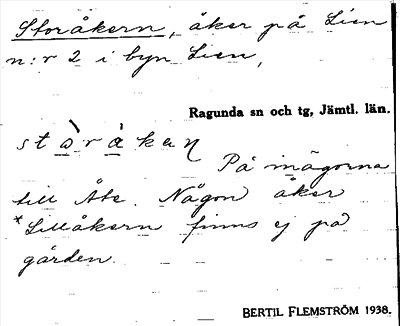 Storåkern, åker på Lien
n:r 2 i byn Lien,
Ragunda sn och tg, Jämtl. län.
På inägorna
till Åbe. Någon åker
*Lillåkern finns ej på
gården.
BERTIL FLEMSTRÖM 1938.